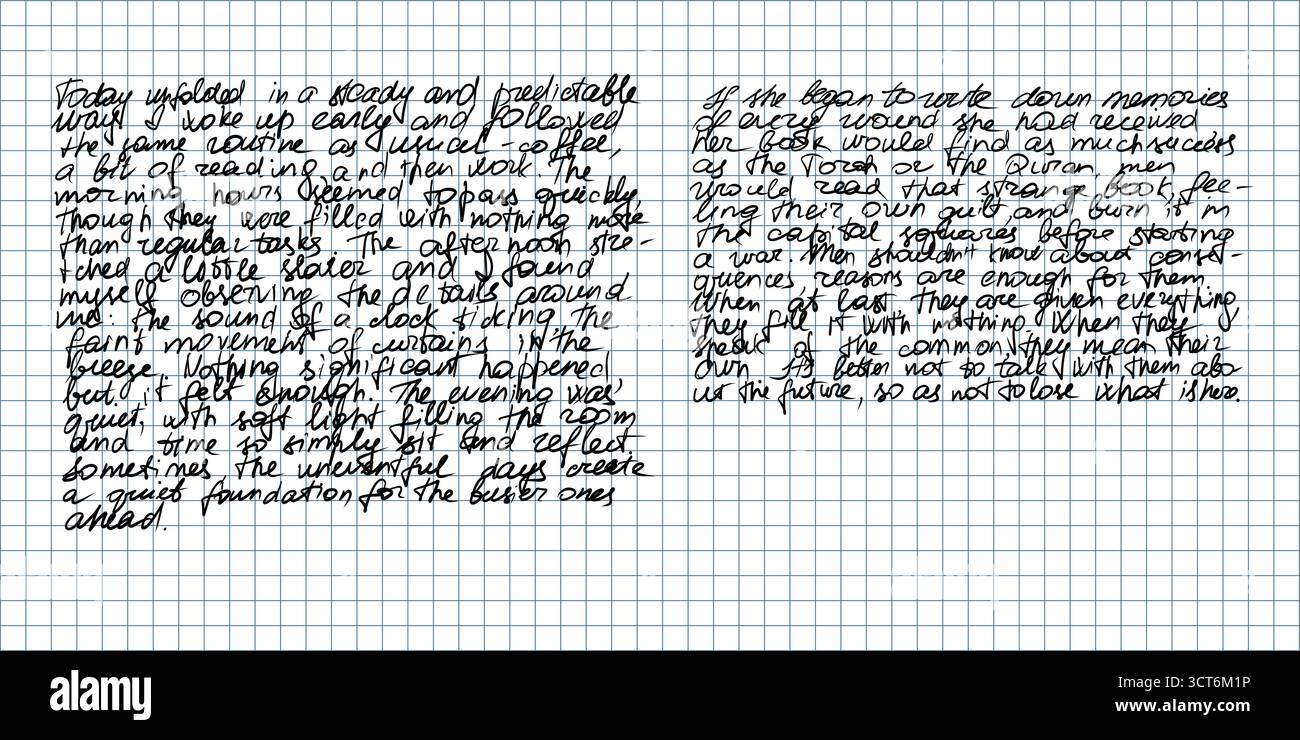 Today unfolded in a steady and predictable
way. I woke up early and followed
the same routine as usual - coffee,
a bit of reading and then work. The
morning hours seemed to pass quickly,
though they were filled with nothing more
than regular tasks. The afternoon stre-
tched a little slower and I found
myself observing the details around
me: the sound of a clock ticking, the
faint movement of curtains in the
breeze. Nothing significant happened
but it felt enough. The evening was
quiet, with soft light filling the room
and time so simply sit and reflect.
Sometimes the uneventful days create
a quiet foundation for the busier ones
ahead.
If she began to write down memories
of every wound she had received
her book would find as much success
as the Torah or the Quran, men
would read that strange book, fee-
ling their own guilt, and burn it in
the capital squares before starting
a war. Men shouldn't know about conse-
quences, reasons are enough for them.
When at last they are given everything,
they fill it with nothing. When they
speak of the common, they mean their
own. It's better not to talk with them abo-
ut the future, so as not to lose what is here.
alamy
Image ID: 3CT6M1P
www.alamy.com